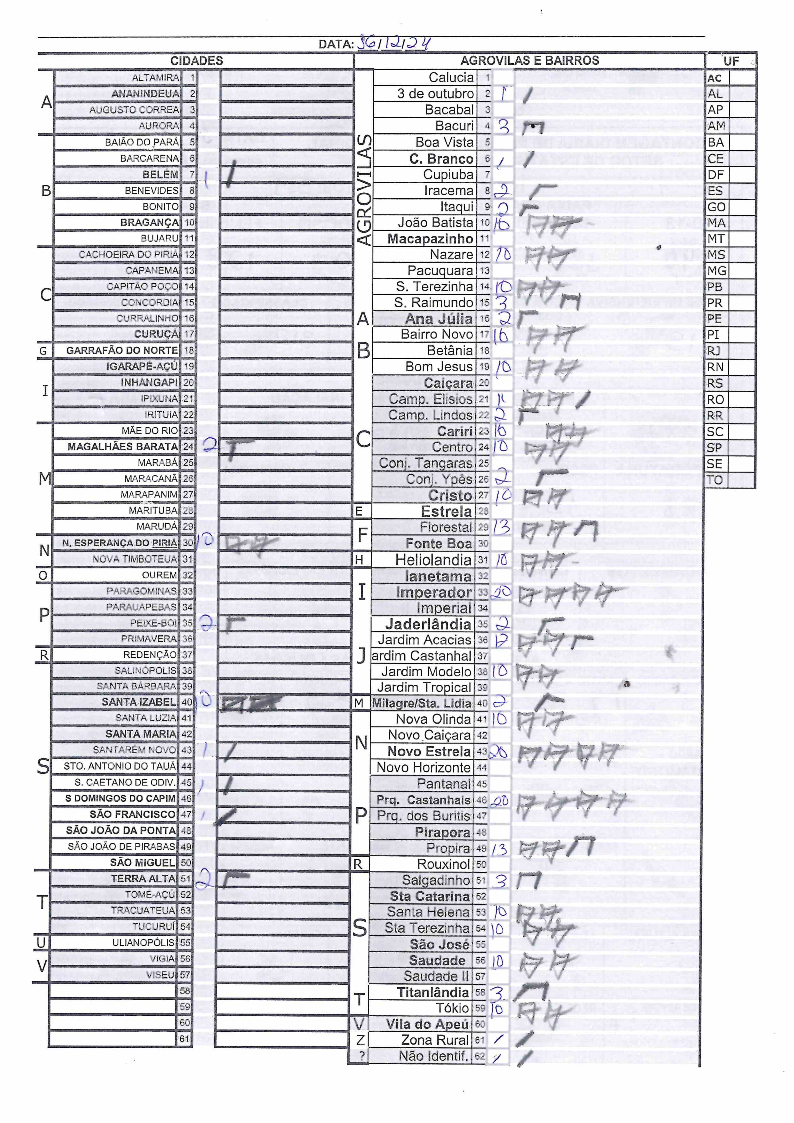 DATA: 36/12/24
CIDADES AGROVILAS E BAIRROS UF
A
ALTAMIRA 1
ANANINDEUA 2
AUGUSTO CORREA 3
AURORA 4
B
BAIÃO DO PARÁ 5
BARCARENA 6
BELÉM 7 1
BENEVIDES 8
BONITO 9
BRAGANÇA 10
BUJARU 11
C
CACHOEIRA DO PIRIA 12
CAPANEMA 13
CAPITÃO POÇO 14
CONCORDIA 15
CURRALINHO 16
CURUÇÁ 17
G GARRAFÃO DO NORTE 18
I
IGARAPÉ-AÇÚ 19
INHANGAPI 20
IPIXUNA 21
IRITUIA 22
M
MÃE DO RIO 23
MAGALHÃES BARATA 24 2
MARABÁ 25
MARACANÃ 26
MARAPANIM 27
MARITUBA 28
MARUDÁ 29
N
N. ESPERANÇA DO PIRIÁ 30 10
NOVA TIMBOTEUA 31
O OUREM 32
P
PARAGOMINAS 33
PARAUAPEBAS 34
PEIXE-BOI 35 2
PRIMAVERA 36
R REDENÇÃO 37
S
SALINÓPOLIS 38
SANTA BÁRBARA 39
SANTA IZABEL 40 10
SANTA LUZIA 41
SANTA MARIA 42
SANTARÉM NOVO 43 1
STO. ANTONIO DO TAUÁ 44
S. CAETANO DE ODIV. 45 1
S DOMINGOS DO CAPIM 46
SÃO FRANCISCO 47 1
SÃO JOÃO DA PONTA 48
SÃO JOÃO DE PIRABAS 49
SÃO MIGUEL 50
T
TERRA ALTA 51 2
TOMÉ-AÇÚ 52
TRACUATEUA 53
TUCURUÍ 54
U ULIANOPÓLIS 55
V
VIGIA 56
VISEU 57
58
59
60
61
AGROVILAS
Calucia 1
3 de outubro 2 1
Bacabal 3
Bacuri 4 3
Boa Vista 5
C. Branco 6 1
Cupiuba 7
Iracema 8 2
Itaqui 9 2
João Batista 10 10
Macapazinho 11
Nazare 12 10
Pacuquara 13
S. Terezinha 14 10
S. Raimundo 15 3
A Ana Júlia 16 2
B
Bairro Novo 17 10
Betânia 18
Bom Jesus 19 10
C
Caiçara 20
Camp. Elisios 21 11
Camp. Lindos 22 2
Cariri 23 10
Centro 24 10
Conj. Tangaras 25
Conj. Ypês 26 2
Cristo 27 10
E Estrela 28
F
Florestal 29 13
Fonte Boa 30
H Heliolandia 31 10
I
Ianetama 32
Imperador 33 20
Imperial 34
J
Jaderlândia 35 2
Jardim Acacias 36 12
ardim Castanhal 37
Jardim Modelo 38 10
Jardim Tropical 39
M Milagre/Sta. Lidia 40 2
N
Nova Olinda 41 10
Novo Caiçara 42
Novo Estrela 43 20
Novo Horizonte 44
P
Pantanal 45
Prq. Castanhais 46 20
Prq. dos Buritis 47
Pirapora 48
Propira 49 13
R Rouxinol 50
S
Salgadinho 51 3
Sta Catarina 52
Santa Helena 53 10
Sta Terezinha 54 10
São José 55
Saudade 56 10
Saudade II 57
T
Titanlândia 58 3
Tókio 59 10
V Vila do Apeú 60
Z Zona Rural 61 /
? Não Identif. 62 /
AC
AL
AP
AM
BA
CE
DF
ES
GO
MA
MT
MS
MG
PB
PR
PE
PI
RJ
RN
RS
RO
RR
SC
SP
SE
TO